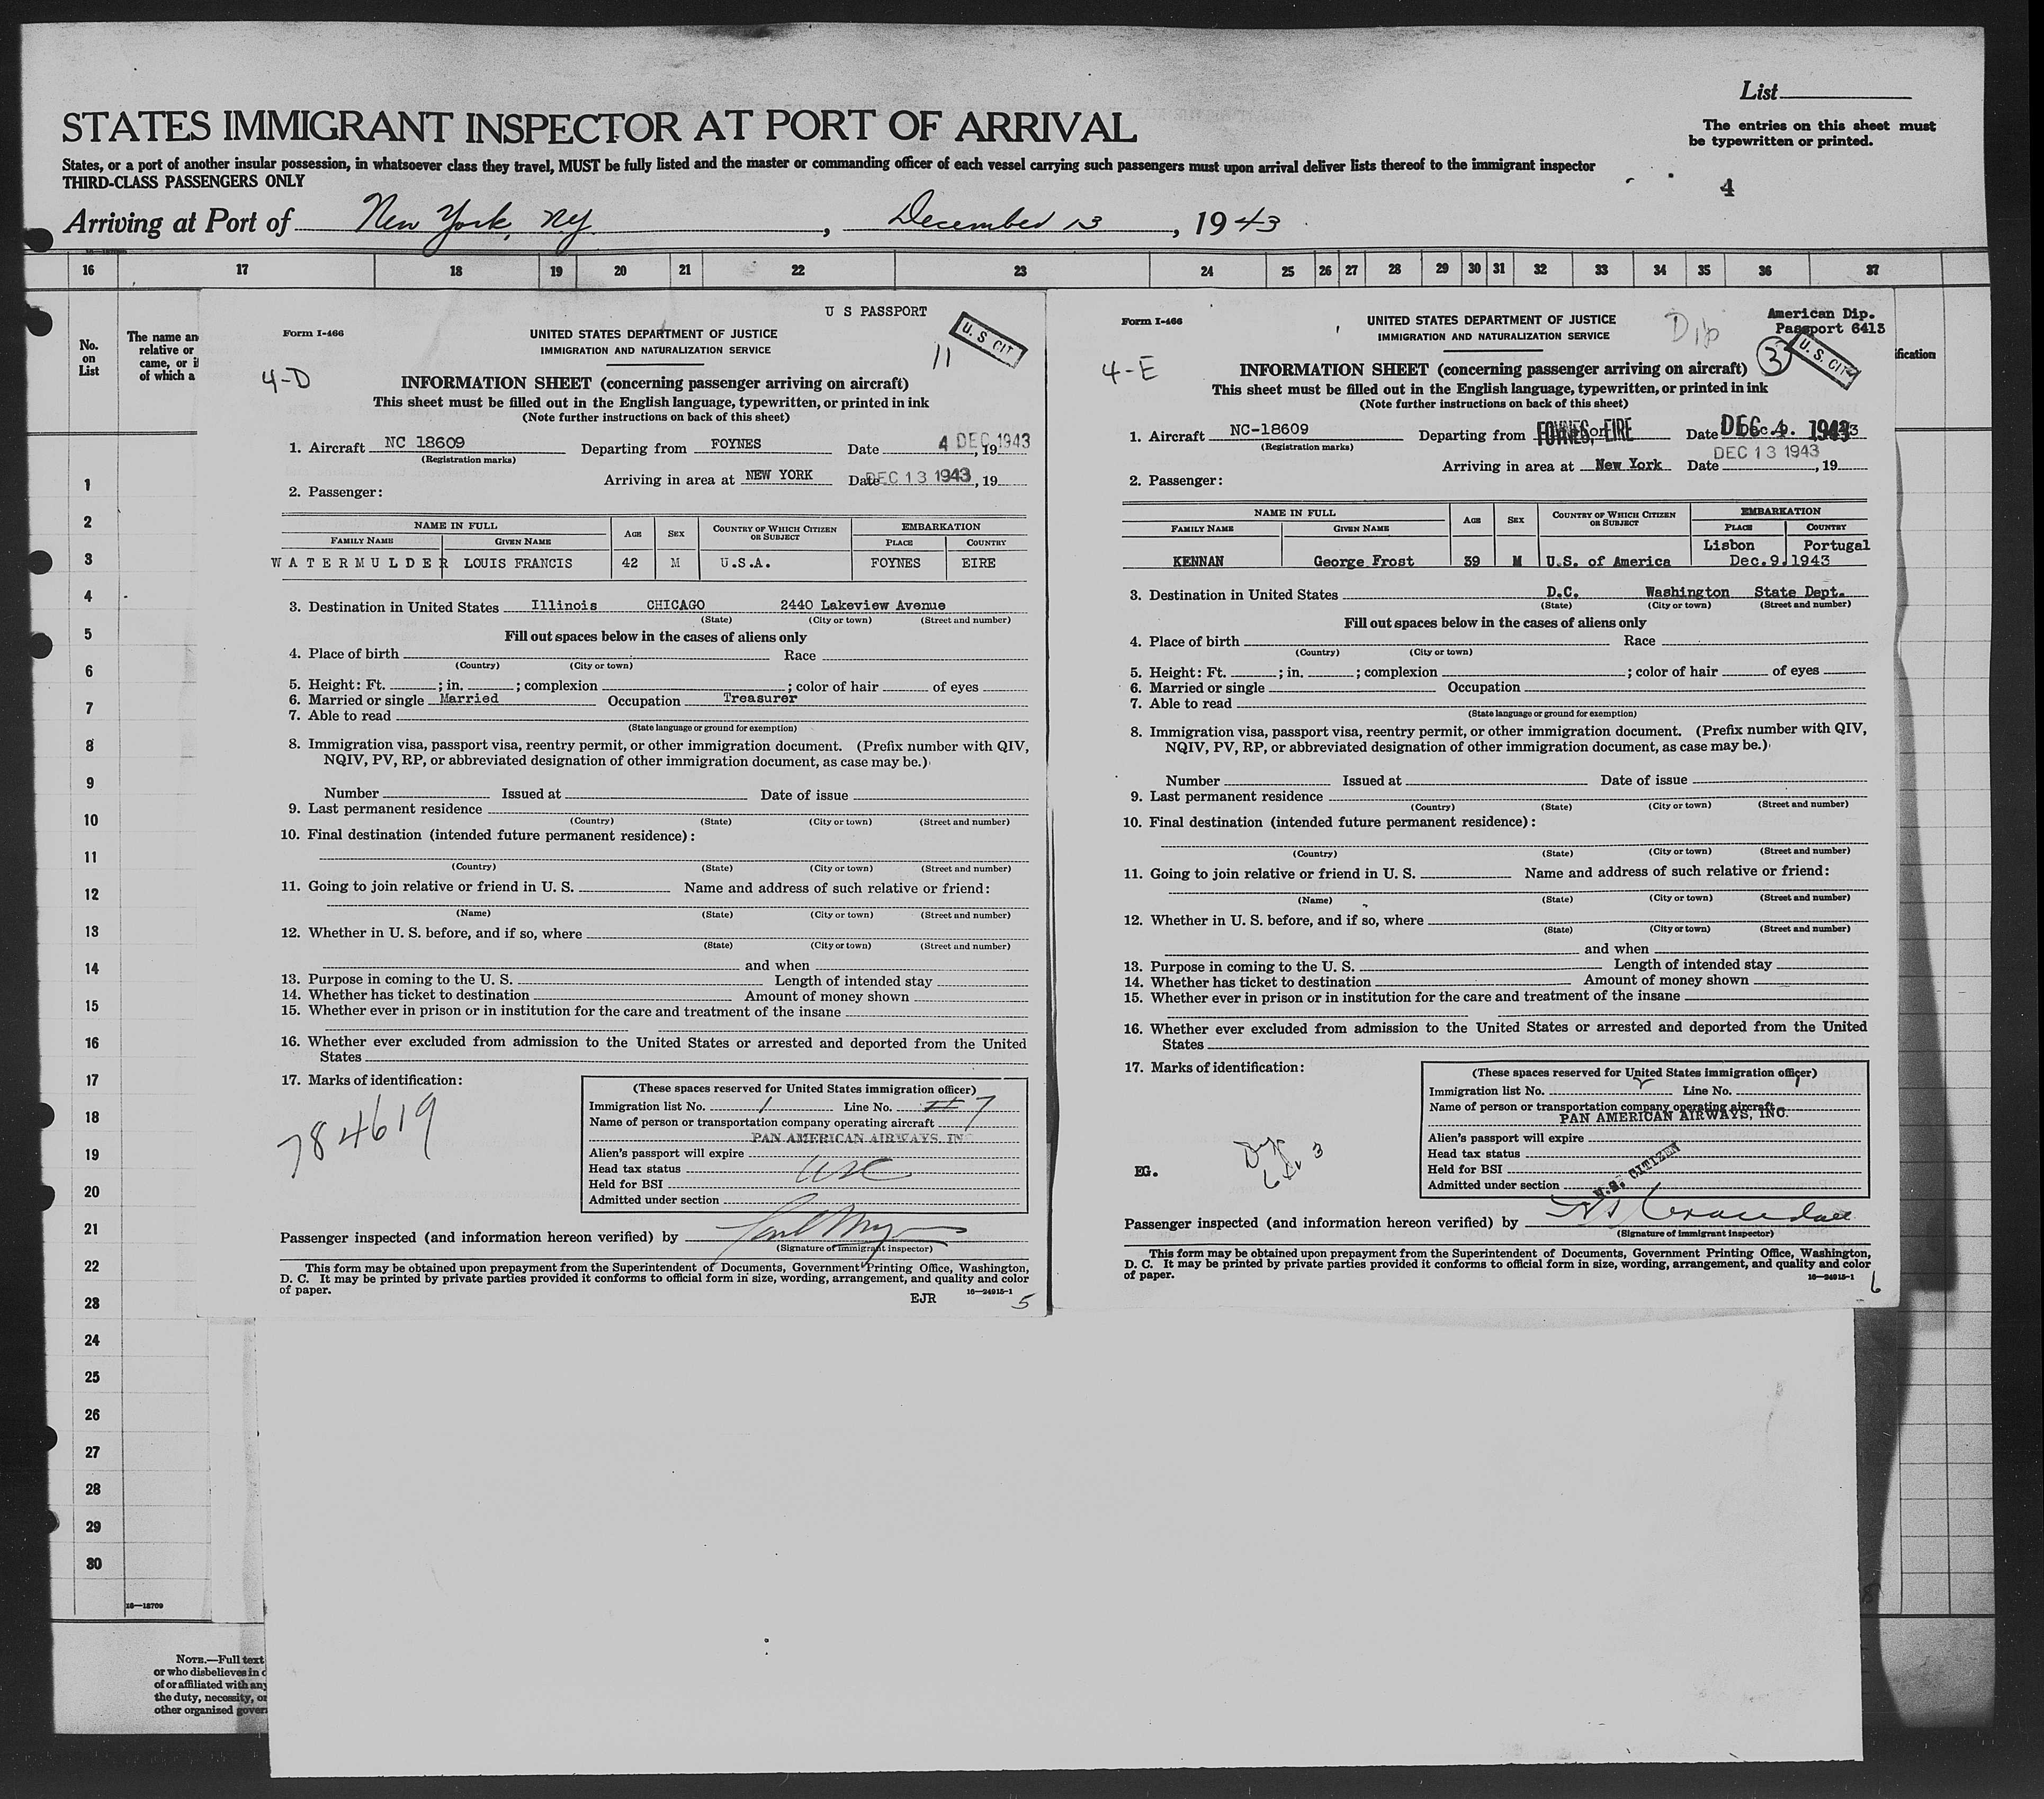 List
STATES IMMIGRANT INSPECTOR AT PORT OF ARRIVAL
The entries on this sheet must
be typewritten or printed.
States, or a port of another insular possession, in whatsoever class they travel, MUST be fully listed and the master or commanding officer of each vessel carrying such passengers must upon arrival deliver lists thereof to the immigrant inspector
THIRD-CLASS PASSENGERS ONLY
4
Arriving at Port of New York, NY, December 13, 1943
16 17 18 19 20 21 22 23 24 25 26 27 28 29 30 31 32 33 34 35 36 37
No.
on
List
The name an
relative or
came, or i
of which a
1
2
3
4
5
6
7
8
9
10
11
12
13
14
15
16
17
18
19
20
21
22
23
24
25
26
27
28
29
30
16—18709
NOTE.—Full text
or who disbelieves in o
of or affiliated with any
the duty, necessity, or
other organized gover
U S PASSPORT
U. S. CIT
11
Form I-466
UNITED STATES DEPARTMENT OF JUSTICE
IMMIGRATION AND NATURALIZATION SERVICE
4-D
INFORMATION SHEET (concerning passenger arriving on aircraft)
This sheet must be filled out in the English language, typewritten, or printed in ink
(Note further instructions on back of this sheet)
1. Aircraft NC 18609 Departing from FOYNES Date 4 DEC 1943, 19
(Registration marks)
Arriving in area at NEW YORK Date DEC 13 1943, 19
2. Passenger:
NAME IN FULL AGE SEX COUNTRY OF WHICH CITIZEN OR SUBJECT EMBARKATION
FAMILY NAME GIVEN NAME PLACE COUNTRY
WATERMULDER LOUIS FRANCIS 42 M U.S.A. FOYNES EIRE
3. Destination in United States Illinois CHICAGO 2440 Lakeview Avenue
(State) (City or town) (Street and number)
Fill out spaces below in the cases of aliens only
4. Place of birth Race
(Country) (City or town)
5. Height: Ft. ; in. ; complexion ; color of hair of eyes
6. Married or single Married Occupation Treasurer
7. Able to read
(State language or ground for exemption)
8. Immigration visa, passport visa, reentry permit, or other immigration document. (Prefix number with QIV,
NQIV, PV, RP, or abbreviated designation of other immigration document, as case may be.)
Number Issued at Date of issue
9. Last permanent residence
(Country) (State) (City or town) (Street and number)
10. Final destination (intended future permanent residence):
(Country) (State) (City or town) (Street and number)
11. Going to join relative or friend in U. S. Name and address of such relative or friend:
(Name) (State) (City or town) (Street and number)
12. Whether in U. S. before, and if so, where
(State) (City or town) (Street and number)
and when
13. Purpose in coming to the U. S. Length of intended stay
14. Whether has ticket to destination Amount of money shown
15. Whether ever in prison or in institution for the care and treatment of the insane
16. Whether ever excluded from admission to the United States or arrested and deported from the United
States
17. Marks of identification:
784619
(These spaces reserved for United States immigration officer)
Immigration list No. 1 Line No. 7
Name of person or transportation company operating aircraft
PAN AMERICAN AIRWAYS, IN
Alien's passport will expire
Head tax status USC
Held for BSI
Admitted under section
Passenger inspected (and information hereon verified) by
(Signature of immigrant inspector)
This form may be obtained upon prepayment from the Superintendent of Documents, Government Printing Office, Washington,
D. C. It may be printed by private parties provided it conforms to official form in size, wording, arrangement, and quality and color
of paper.
16—24915-1
EJR
5
American Dip.
Passport 6413
Dip
3
U. S. CIT
ification
Form I-466
UNITED STATES DEPARTMENT OF JUSTICE
IMMIGRATION AND NATURALIZATION SERVICE
4-E
INFORMATION SHEET (concerning passenger arriving on aircraft)
This sheet must be filled out in the English language, typewritten, or printed in ink
(Note further instructions on back of this sheet)
1. Aircraft NC-18609 Departing from FOYNES, EIRE Date DEC 4. 1943
(Registration marks)
Arriving in area at New York Date DEC 13 1943, 19
2. Passenger:
NAME IN FULL AGE SEX COUNTRY OF WHICH CITIZEN OR SUBJECT EMBARKATION
FAMILY NAME GIVEN NAME PLACE COUNTRY
KENNAN George Frost 39 M U.S. of America Lisbon Portugal
Dec.9.1943
3. Destination in United States D.C. Washington State Dept.
(State) (City or town) (Street and number)
Fill out spaces below in the cases of aliens only
4. Place of birth Race
(Country) (City or town)
5. Height: Ft. ; in. ; complexion ; color of hair of eyes
6. Married or single Occupation
7. Able to read
(State language or ground for exemption)
8. Immigration visa, passport visa, reentry permit, or other immigration document. (Prefix number with QIV,
NQIV, PV, RP, or abbreviated designation of other immigration document, as case may be.)
Number Issued at Date of issue
9. Last permanent residence
(Country) (State) (City or town) (Street and number)
10. Final destination (intended future permanent residence):
(Country) (State) (City or town) (Street and number)
11. Going to join relative or friend in U. S. Name and address of such relative or friend:
(Name) (State) (City or town) (Street and number)
12. Whether in U. S. before, and if so, where
(State) (City or town) (Street and number)
and when
13. Purpose in coming to the U. S. Length of intended stay
14. Whether has ticket to destination Amount of money shown
15. Whether ever in prison or in institution for the care and treatment of the insane
16. Whether ever excluded from admission to the United States or arrested and deported from the United
States
17. Marks of identification:
EG.
(These spaces reserved for United States immigration officer)
Immigration list No. Line No. 1
Name of person or transportation company operating aircraft
PAN AMERICAN AIRWAYS, INC.
Alien's passport will expire
Head tax status
Held for BSI
Admitted under section
U.S. CITIZEN
Passenger inspected (and information hereon verified) by
(Signature of immigrant inspector)
This form may be obtained upon prepayment from the Superintendent of Documents, Government Printing Office, Washington,
D. C. It may be printed by private parties provided it conforms to official form in size, wording, arrangement, and quality and color
of paper.
16—24915-1
6